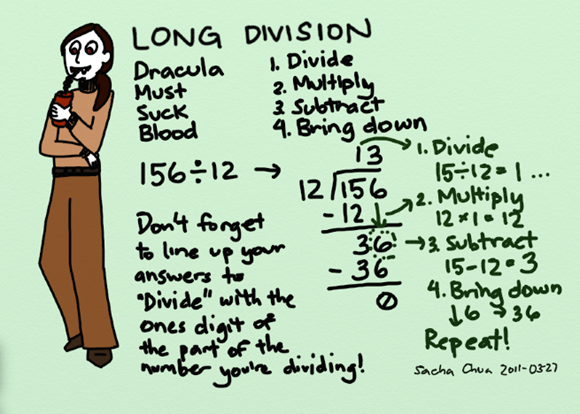 LONG DIVISION
Dracula
Must
Suck
Blood
1. Divide
2. Multiply
3. Subtract
4. Bring down
156÷12 →
13
12 156
-12
36
- 36
0
Don't forget
to line up your
answers to
"Divide" with the
ones digit of
the part of the
number you're dividing!
1. Divide
15÷12=1...
2. Multiply
12×1=12
3. Subtract
15-12=3
4. Bring down
↓6 → 36
Repeat!
Sacha Chua 2011-03-27